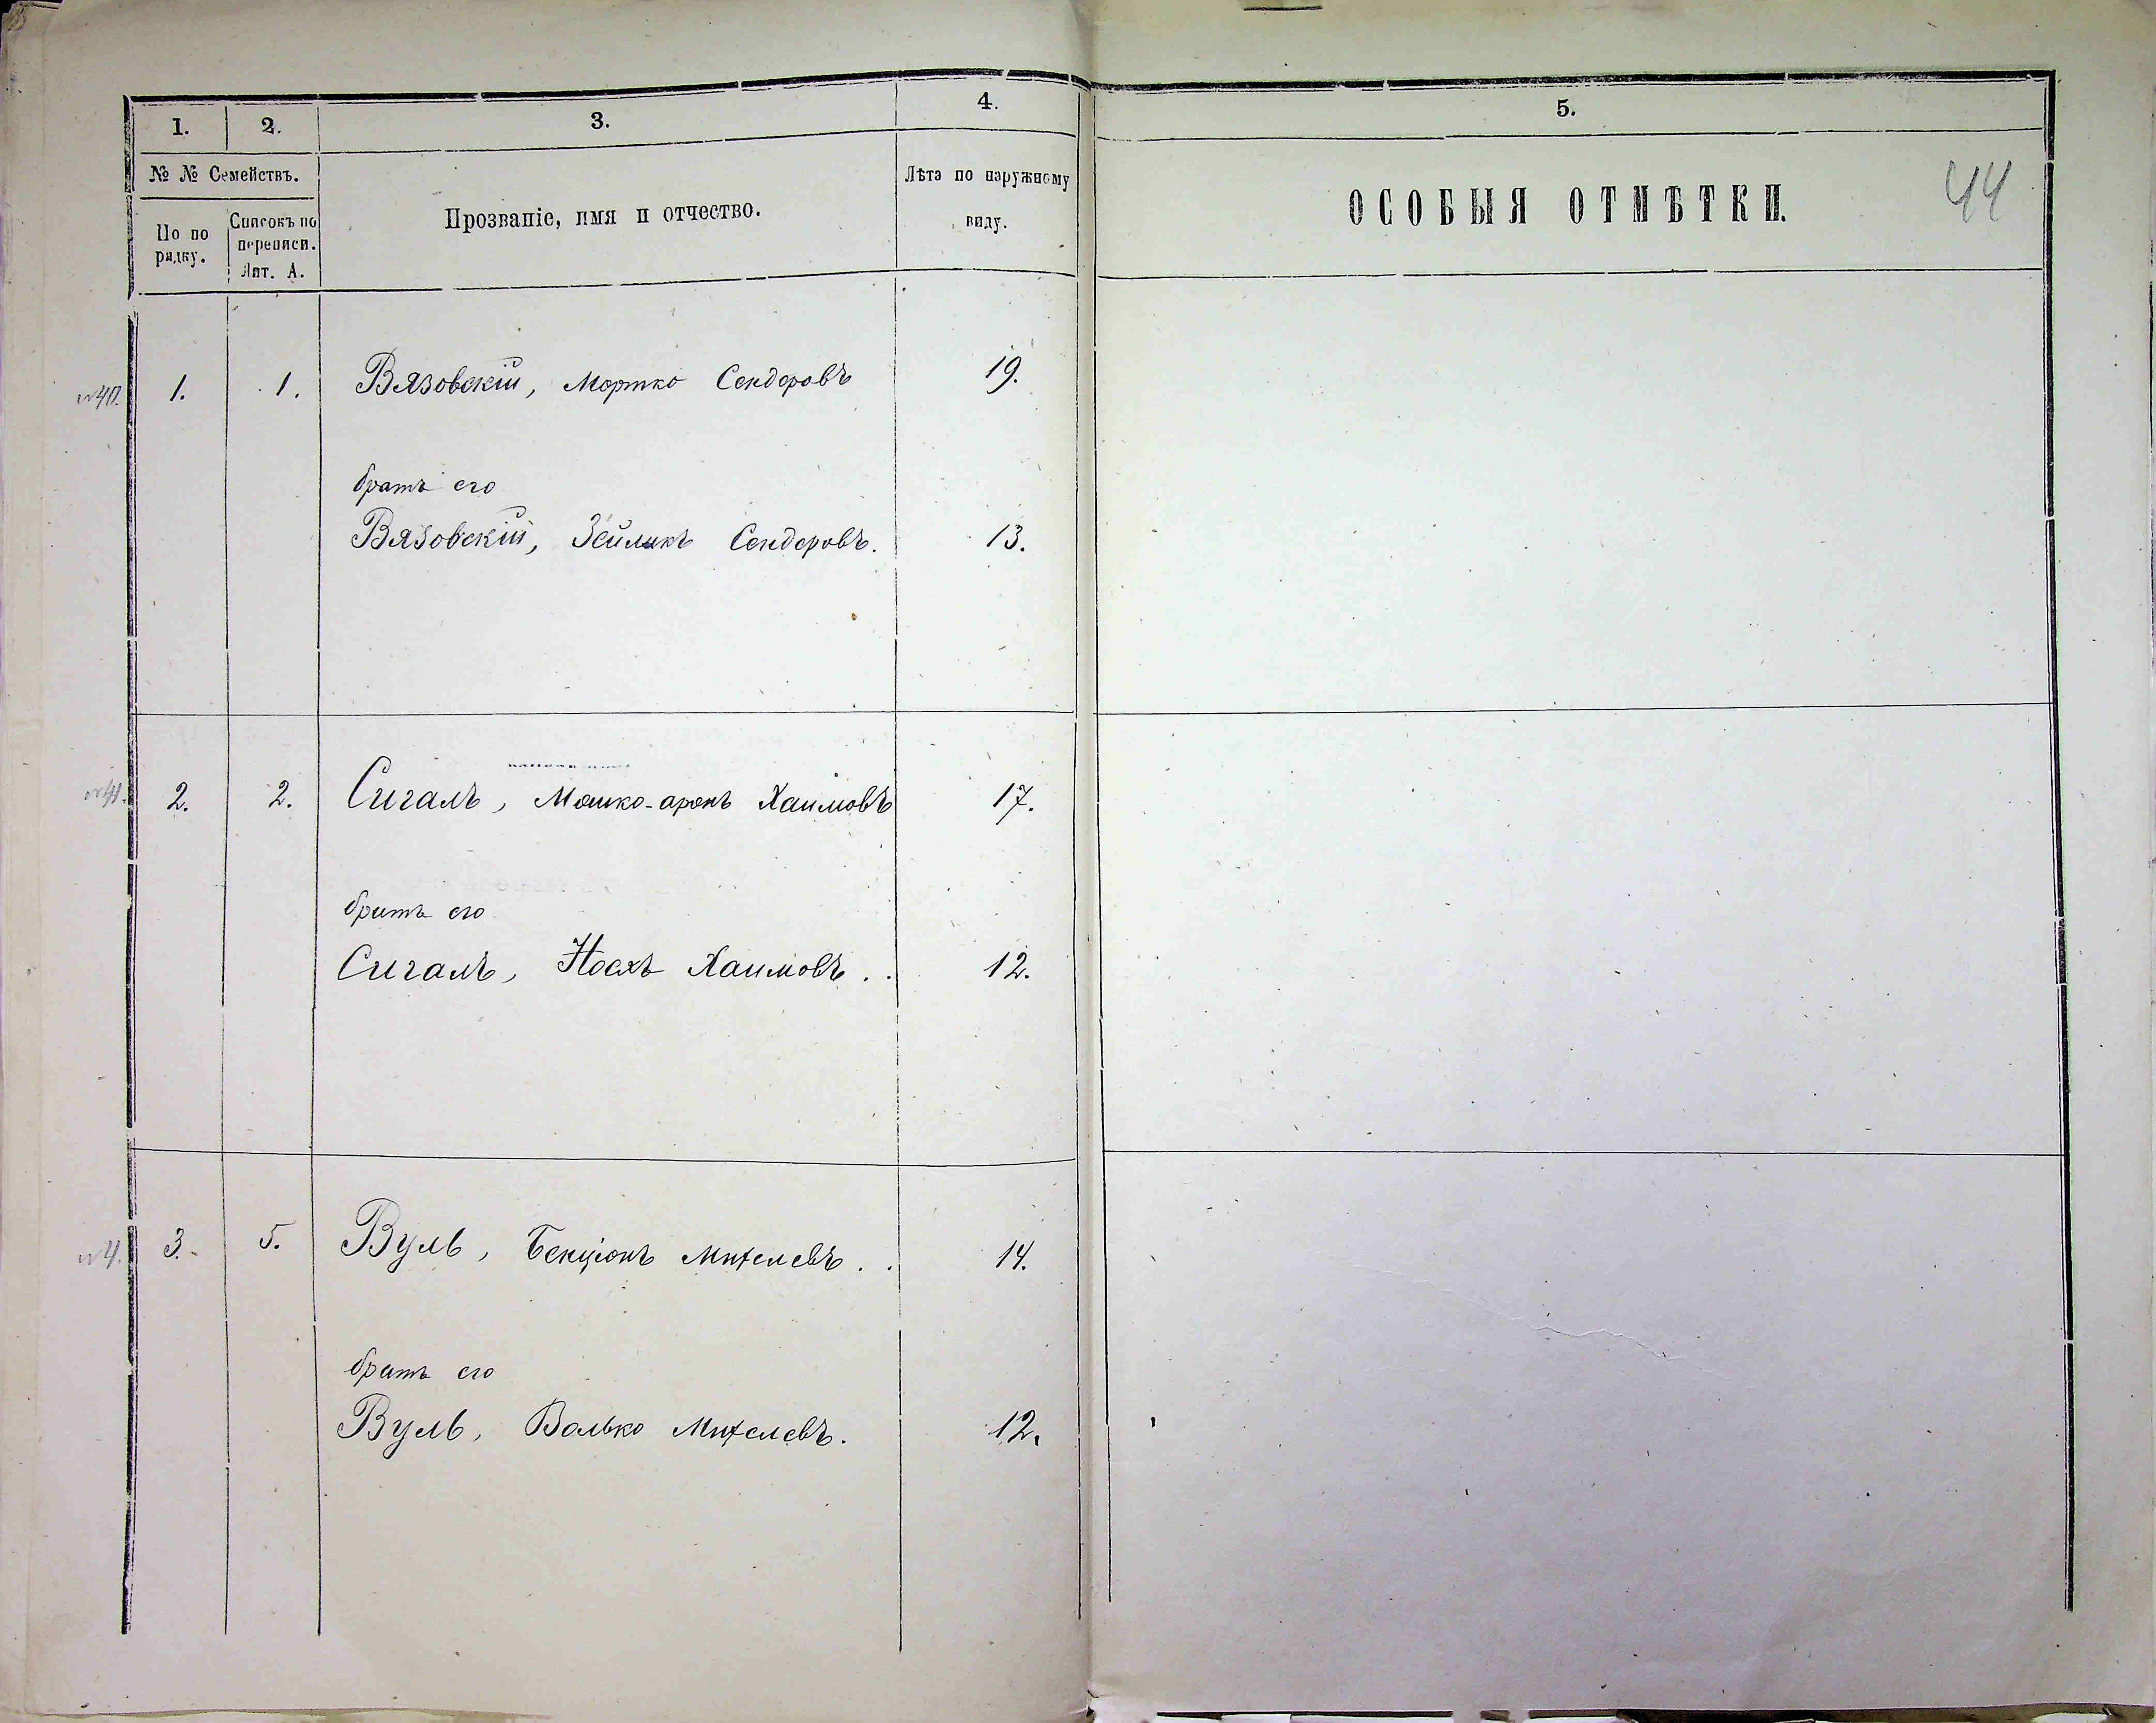 1. 2. 3. 4. 5.
№ № Семействъ.
По по рядку.
Списокъ по переписи. Лит. А.
Прозваніе, имя и отчество.
Лѣта по наружному виду.
ОСОБЫЯ ОТМѢТКИ.
44
№40. 1. 1. Вязовскій, Мортко Сендеровъ 19.
братъ его
Вязовскій, Зейликъ Сендеровъ. 13.
№41. 2. 2. Сигалъ, Мошко-аронъ Хаимовъ 17.
братъ его
Сигалъ, Носхъ Хаимовъ. 12.
№4. 3. 5. Вуль, Бенціонъ Михелевъ. 14.
братъ его
Вуль, Волько Михелевъ. 12.